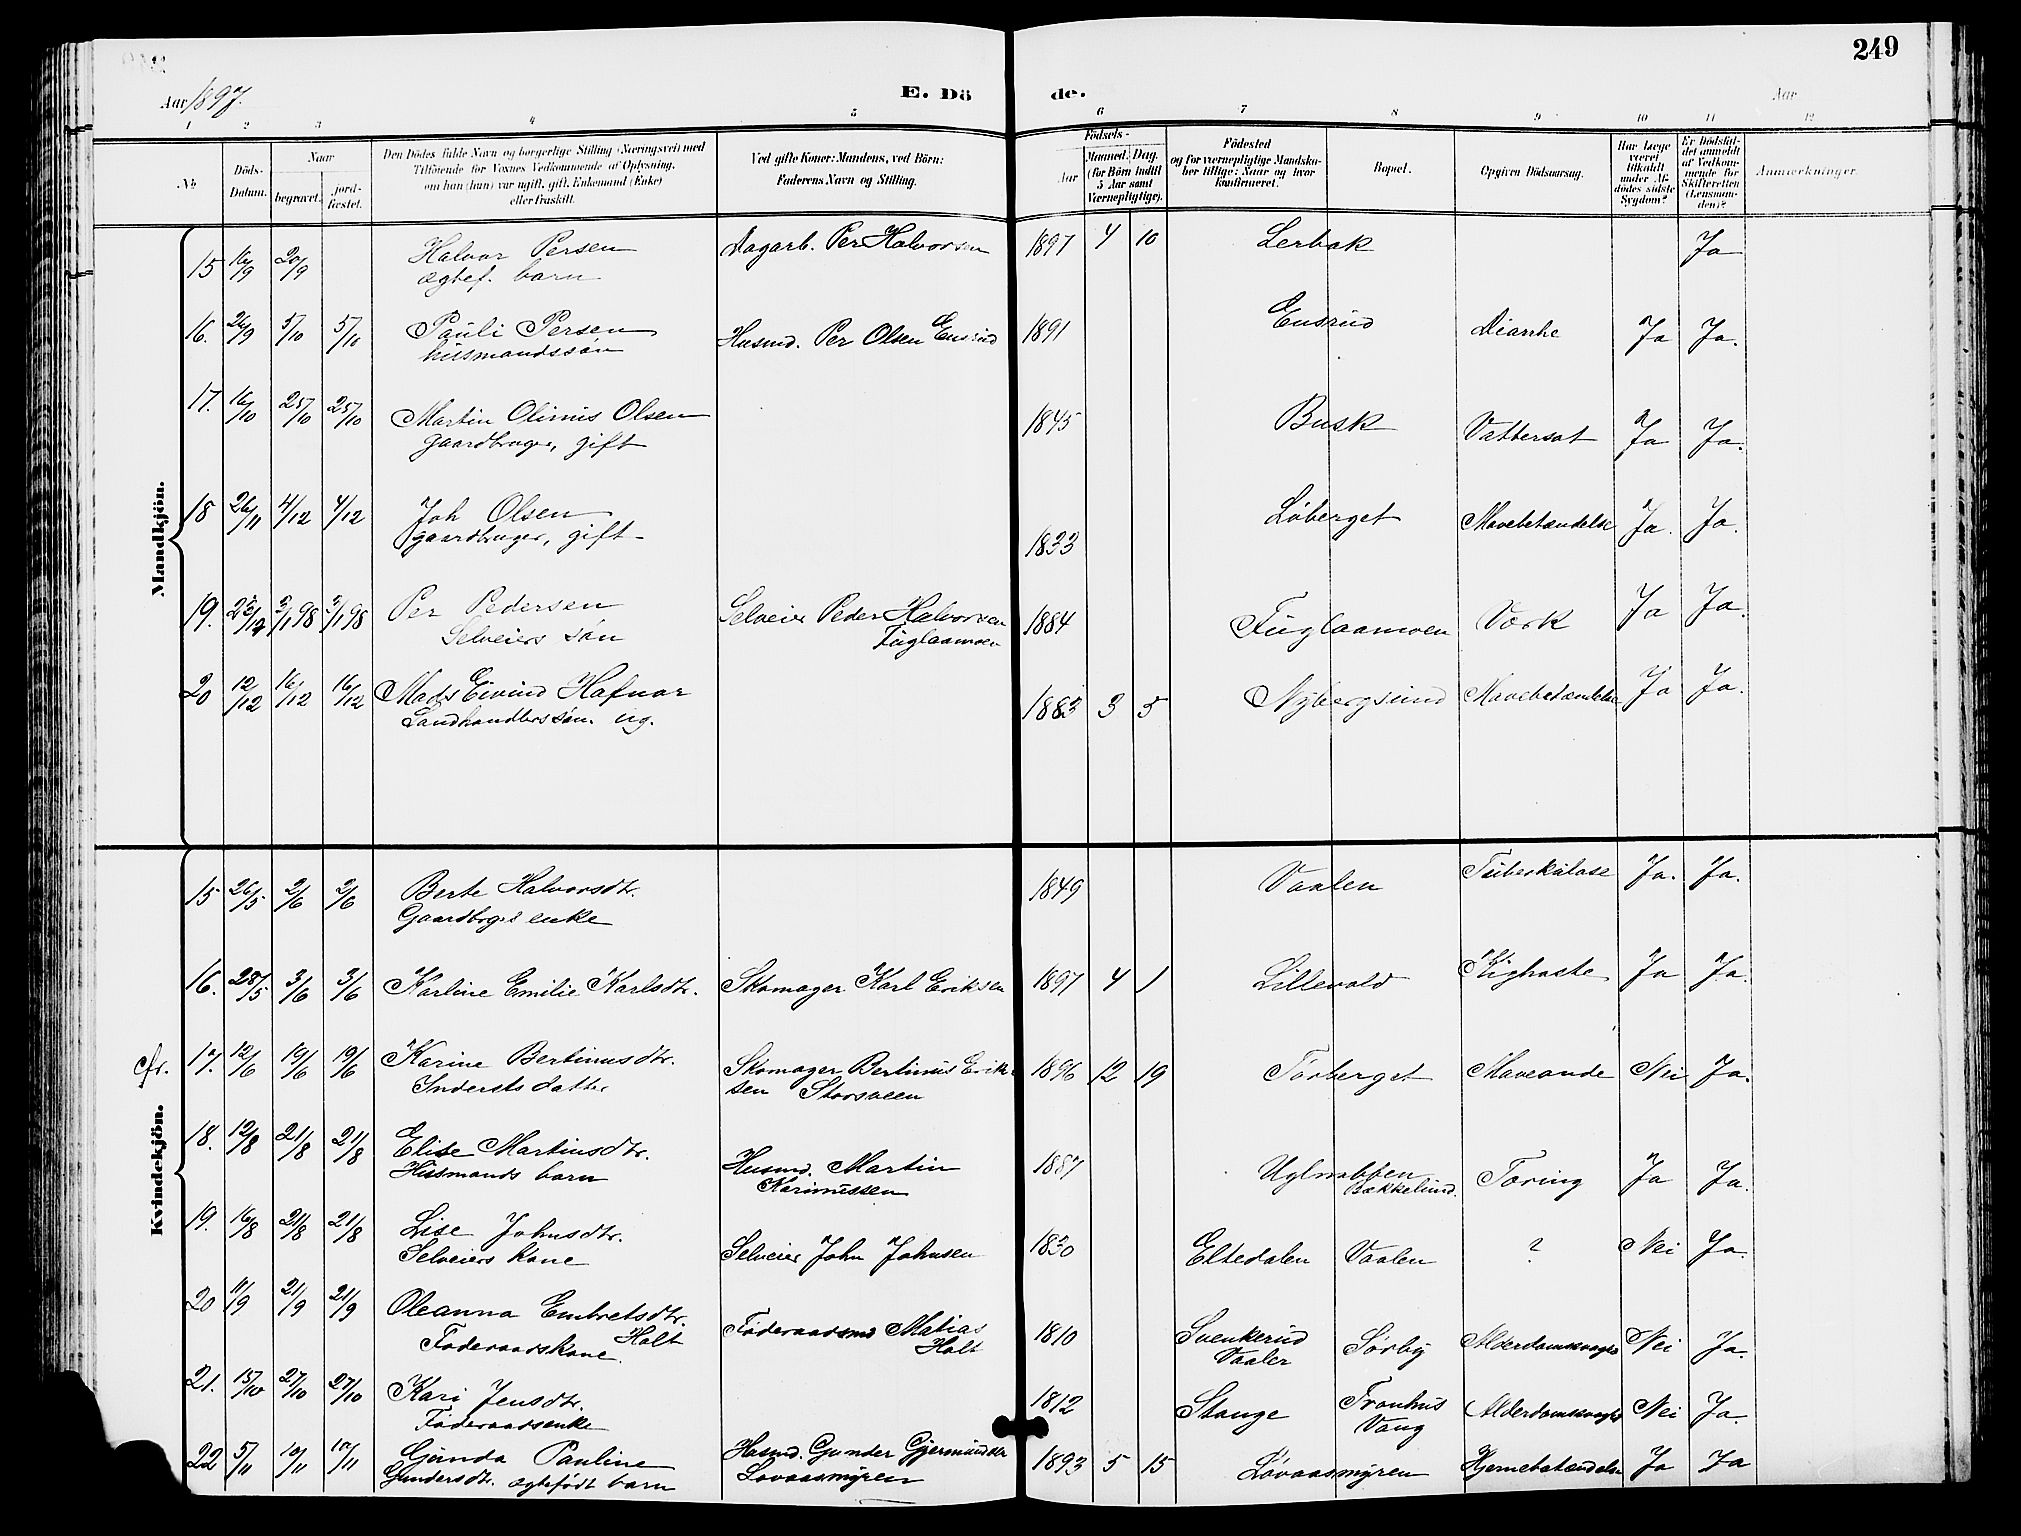 249
Aar 1897.
E. Dö de.
Aar
1 2 3 4 5 6 7 8 9 10 11 12
No
Döds-Datum.
Naar
begravet.
jord-fæstet.
Den Dödes fulde Navn og borgerlige Stilling (Næringsvei) med
Tilföiende for Voxnes Vedkommende af Oplysning,
om han (hun) var ugift, gift, Enkemand (Enke)
eller fraskilt.
Ved gifte Koner: Mandens, ved Börn:
Faderens Navn og Stilling.
Födsels-
Aar
Maaned. Dag.
(for Börn indtil
5 Aar samt
Værnepligtige).
Födested
og for værnepligtige Mandska-
ber tillige: Naar og hvor
konfirmeret.
Bopæl.
Opgiven Dödsaarsag.
Har Læge
været
tilkaldt
under Af-
dödes sidste
Sygdom?
Er Dödsfal-
det anmeldt
af Vedkom-
mende for
Skifteretten
(Lensman-
den)?
Anmærkninger.
Mandkjön.
15 16/9 20/9 Halvor Persen Dagarb. Per Halvorsen 1897 4 10 Lerbak Ja
ægtef. barn
16. 26/9 5/10 5/10 Pauli Persen Husmd. Per Olsen Ensrud 1891 Ensrud Diarrhe Ja Ja.
husmandssøn
17. 16/10 25/10 25/10 Martin Olinus Olsen 1845 Busk Vattersot Ja Ja.
gaardbruger, gift
18 26/11 4/12 4/12 Joh Olsen 1833 Løberget Mavebetændelse Ja. Ja.
gaardbruger, gift
19. 3/1 98 3/1 98 Per Pedersen Selveier Peder Halvorsen 1884 Fuglaamoen Værk Ja Ja.
Selveiers søn Fuglaamoen
20 12/12 16/12 16/12 Mads Eivind Hafnor 1883 3 5 Nybergsund Mavebetændelse Ja Ja.
Landhandlerssøn. ug.
Kvindekjön.
15 26/5 2/6 2/6 Berte Halvorsdtr. 1849 Vaalen Tuberkulose Ja. Ja.
Gaardbrgs enke
16. 28/5 3/6 3/6 Karline Emilie Karlsdtr. Skomager Karl Eriksen 1897 4 1 Lillevold Kighoste Ja Ja.
fr. 17. 12/6 19/6 19/6 Karine Bertinusdtr. Skomager Bertinus Erik- 1896 12 19 Törberget Maveonde Nei Ja.
Inderstsdatter sen Storsveen
18. 12/8 21/8 21/8 Elise Martinsdtr. Husmd. Martin 1887 Uglnabben Tæring Ja Ja.
Husmands barn Karinussen Bækkelund.
19. 16/8 21/8 21/8 Lise Johnsdtr. Selveier John Johnsen 1830 Eltedalen Vaalen ? Nei Ja.
Selveiers kone
20 11/9 21/9 21/9 Oleanna Embretsdtr. Holt Føderaadsmd Matias Holt 1810 Svenkerud Vaaler Sørby Alderdomssvaghed Nei Ja.
Føderaadskone
21. 15/10 27/10 27/10 Kari Jensdtr. 1812 Stange Fronhus Vang Alderdomssvaghed Nei Ja.
Føderaadsenke
22 5/11 10/11 10/11 Gunda Pauline Husmd. Gunder Gjermundsen 1893 5 15 Lövaasmyren Hjernebetændelse Ja Ja
Gundersdtr. ægtefödt barn Lovaasmyren